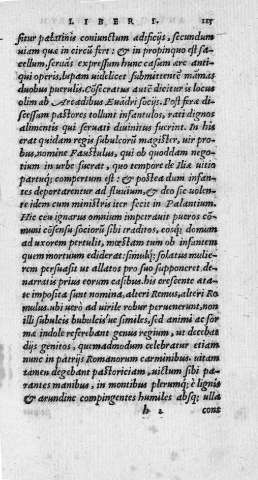 LIBER I. 115
situr palatinis coniunctum ædificijs, secundum
uiam qua in circū fert: & in propinquo est sa-
cellum, seruās expressum hunc casum arc anti-
qui operis, lupam uidelicet submittentē mamas
duobus puerulis. Cōsecratus autē dicitur is locus
olim ab Arcadibus Euādri socijs. Post feræ di-
scessum pastores tollunt infantulos, rati dignos
alimentis qui seruati diuinitus fuerint. In his
erat quidam regis subulcorū magister, uir pro-
bus, nomine Faustulus, qui ob quoddam nego-
tium in urbe fuerat, quo tempore de Iliæ uitio
partuq; compertum est: & postea dum infan-
tes deportarentur ad fluuium, & deo sic uolen-
te idem cum ministris iter fecit in Palantium.
Hic ceu ignarus omnium impetrauit pueros cō-
muni cōsensu sociorū sibi traditos, eosq; domum
ad uxorem pertulit, mœstam tum ob infantem
quem mortuum ediderat: simulq; solatus mulie-
rem persuasit ut allatos pro suo supponeret de-
narratis prius eorum casibus. his crescente æta-
te imposita sunt nomina, alteri Remus, alteri Ro
mulus. ubi uerò ad uirile robur peruenerunt, non
illi subulcis bubulcis'ue similes, sed animi ac for
ma indole referebant genus regium, ut decebat
dijs genitos, quemadmodum celebratur etiam
nunc in patrijs Romanorum carminibus. uitam
tamen degebant pastoriciam, uictum sibi pa-
rantes manibus, in montibus plerumq; è lignis
& arundine compingentes humiles absq; ulla
h 2 cont